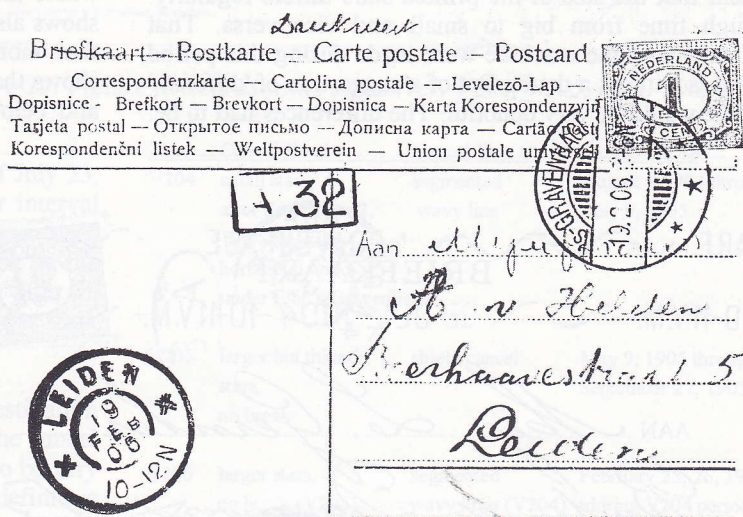 Drukwerk
Briefkaart — Postkarte — Carte postale — Postcard
Correspondenzkarte — Cartolina postale — Levelező-Lap
Dopisnice - Brefkort — Brevkort — Dopisnica — Karta Korespondenzyjn
Tarjeta postal — Открытое письмо — Дописна карта — Cartão post
Korespondenční listek — Weltpostverein — Union postale univ
NEDERLAND
1
CENT
'S-GRAVENHAGE
9.2.06
A.32
Aan Mejuf
A v Heiden
straat 5
Leiden
LEIDEN
9
FEB
06
10-12N